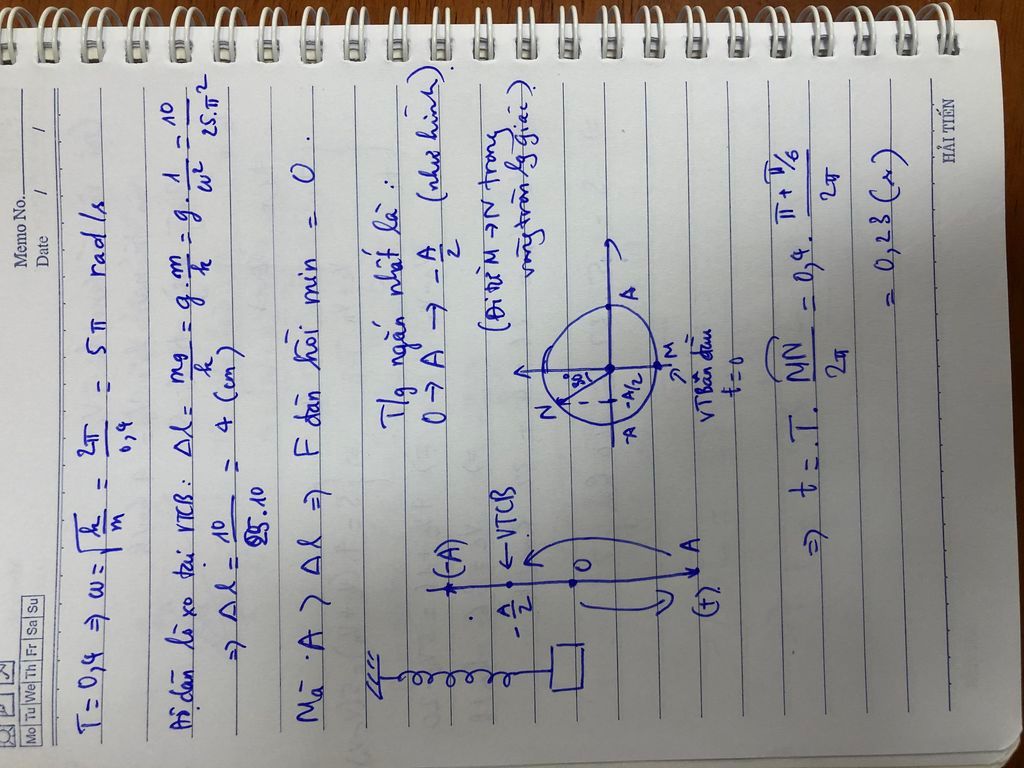 Memo No.
Date / /
Mo Tu We Th Fr Sa Su
T = 0,4 ⇒ ω = √(k/m) = 2π/0,4 = 5π rad/s
Độ dãn lò xo tại VTCB: Δl = mg/k = g.m/k = g.1/ω² = 10/25.π²
⇒ Δl = 10/25.10 = 4 (cm)
Mà A > Δl ⇒ F đàn hồi min = 0.
T/g ngắn nhất là:
O → A → -A/2 (như hình).
(Đi từ M → N trong
vòng tròn lg giác)
(-A)
-A/2 ← VTCB
O
(+) A
N
30°
-A -A/2 A
M
VT ban đầu
t = 0
⇒ t = T. MN/2π = 0,4. π + π/6/2π
= 0,23 (s)
HẢI TIẾN